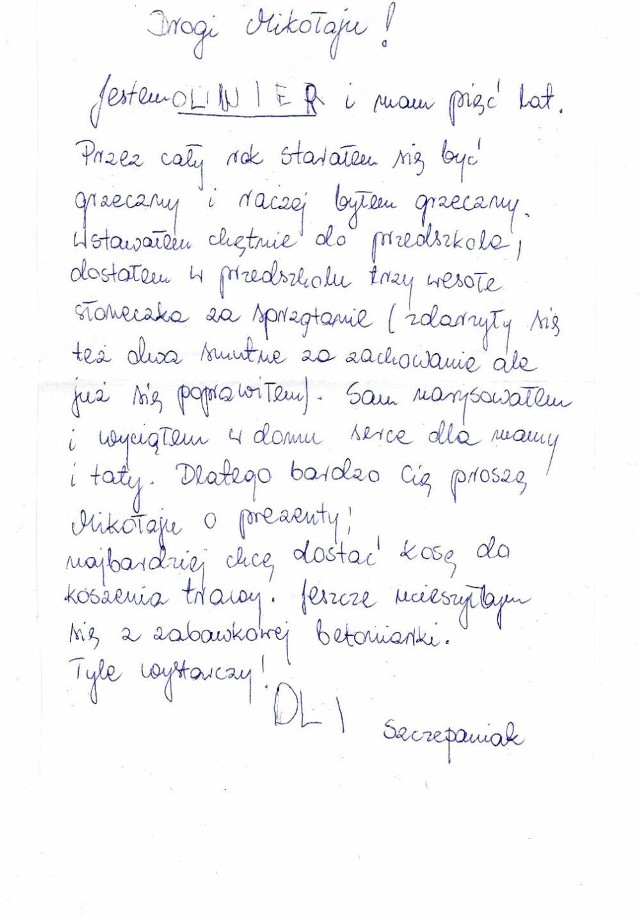 Drogi Mikołaju!
Jestem OLIWIER i mam pięć lat.
Przez cały rok starałem się być
grzeczny i raczej byłem grzeczny.
Wstawałem chętnie do przedszkola,
dostałem w przedszkolu trzy wesołe
słoneczka za sprzątanie (zdarzyły się
też dwa smutne za zachowanie ale
już się poprawiłem). Sam narysowałem
i wyciąłem w domu serce dla mamy
i taty. Dlatego bardzo Cię proszę
Mikołaju o prezenty;
najbardziej chcę dostać kosę do
koszenia trawy. Jeszcze ucieszyłbym
się z zabawkowej betoniarki.
Tyle wystarczy!
OLI Szczepaniak